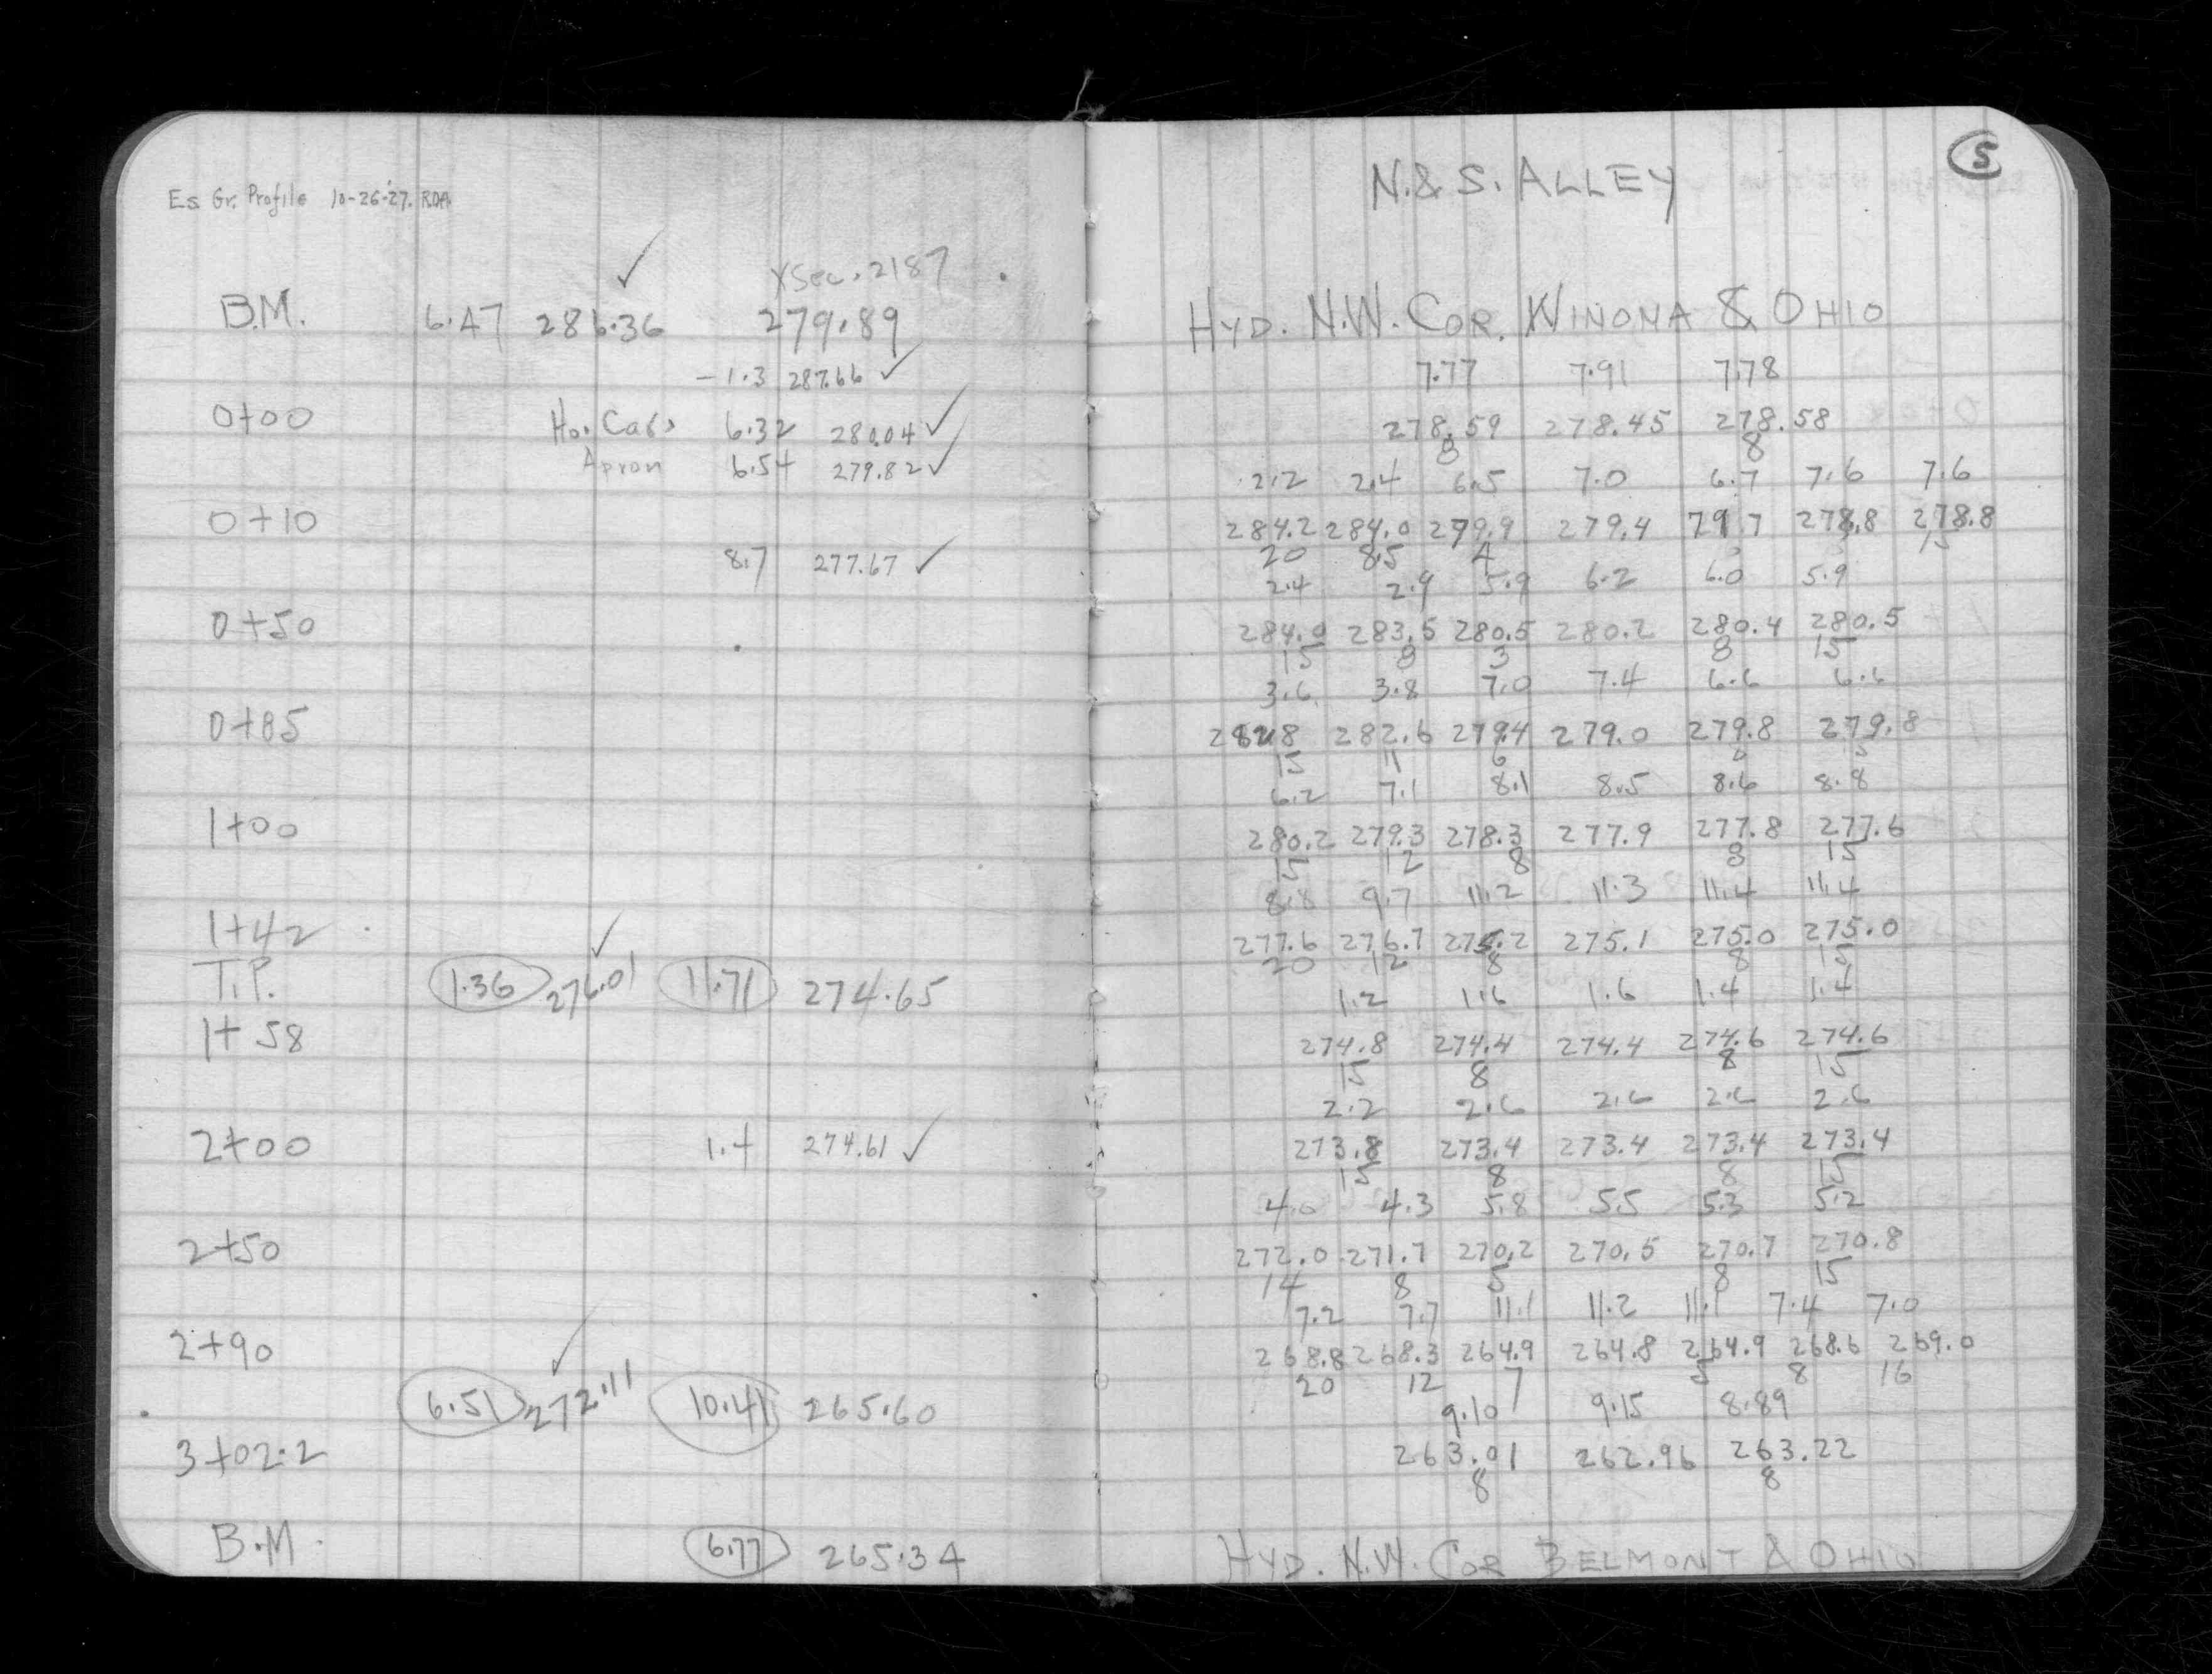 Es. Gr. Profile 10-26-'27. R.D.A.
XSec. 2187
B.M. 6.47 286.36 279.89
-1.3 287.66
0+00 Ho. Cab. 6.32 280.04
Apron 6.54 279.82
0+10
8.7 277.67
0+50
0+85
1+00
1+42
T.P. 1.36 276.01 11.71 274.65
1+58
2+00 1.4 274.61
2+50
2+90
6.51 272.11 10.41 265.60
3+02.2
B.M. 6.77 265.34
5
N. & S. ALLEY
HYD. N.W. COR. WINONA & OHIO
7.77 7.91 7.78
278.59 278.45 278.58
8 8
2.2 2.4 6.5 7.0 6.7 7.6 7.6
284.2 284.0 279.9 279.4 79.7 278.8 278.8
20 8.5 4 15
2.4 2.9 5.9 6.2 6.0 5.9
284.0 283.5 280.5 280.2 280.4 280.5
15 8 3 8 15
3.6 3.8 7.0 7.4 6.6 6.6
282.8 282.6 279.4 279.0 279.8 279.8
15 11 6 8 15
6.2 7.1 8.1 8.5 8.6 8.8
280.2 279.3 278.3 277.9 277.8 277.6
15 12 8 8 15
8.8 9.7 11.2 11.3 11.4 11.4
277.6 276.7 275.2 275.1 275.0 275.0
20 12 8 8 15
1.2 1.6 1.6 1.4 1.4
274.8 274.4 274.4 274.6 274.6
15 8 8 15
2.2 2.6 2.6 2.6 2.6
273.8 273.4 273.4 273.4 273.4
15 8 8 15
4.0 4.3 5.8 5.5 5.3 5.2
272.0 271.7 270.2 270.5 270.7 270.8
14 8 5 8 15
7.2 7.7 11.1 11.2 11.1 7.4 7.0
268.8 268.3 264.9 264.8 264.9 268.6 269.0
20 12 7 5 8 16
9.10 9.15 8.89
263.01 262.96 263.22
8 8
HYD. N.W. COR BELMONT & OHIO